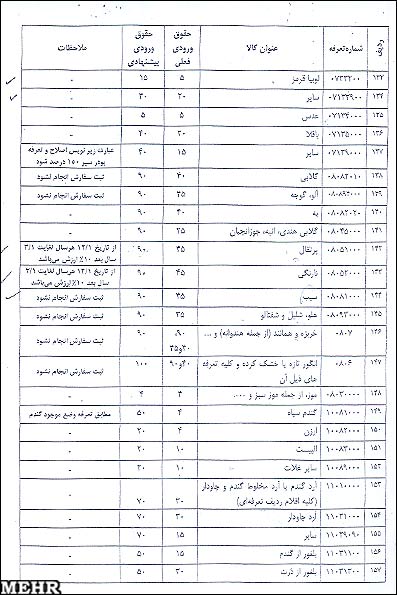 ردیف شماره تعرفه عنوان کالا حقوق ورودی فعلی حقوق ورودی پیشنهادی ملاحظات
لوبیا قرمز ۵ ۱۵ -
۱۳۴ ۰۷۱۳۳۹۰۰ سایر ۲۰ ۳۰ -
۱۳۵ ۰۷۱۳۴۰۰۰ عدس ۵ ۵ -
۱۳۶ ۰۷۱۳۵۰۰۰ باقلا ۲۰ ۴۰ -
۱۳۷ ۰۷۱۳۹۰۰۰ سایر ۱۵ ۴۰ عبارت زیر نویس اصلاح و تعرفه
پودر سیر ۱۵۰ درصد شود
۱۳۸ ۰۸۰۸۲۰۱۰ گلابی ۴۰ ۹۰ ثبت سفارش انجام نشود
۱۳۹ آلو، گوجه ۳۵ ۹۰ ثبت سفارش انجام نشود
۱۴۰ ۰۸۰۸۲۰۲۰ به ۴۰ ۹۰ -
۱۴۱ ۰۸۰۴۵۰۰۰ گلابی هندی، انبه، جوزانجبان ۲۵ ۹۰ -
۱۴۲ ۰۸۰۵۱۰۰۰ پرتقال ۴۵ ۹۰ از تاریخ ۱۲/۱ هرسال لغایت ۳/۱
سال بعد ۱۰٪ ارزش می‌باشد
۱۴۳ ۰۸۰۵۲۰۰۰ نارنگی ۴۵ ۹۰ از تاریخ ۱۲/۱ هرسال لغایت ۲/۱
سال بعد ۱۰٪ ارزش می‌باشد
۱۴۴ ۰۸۰۸۱۰۰۰ سیب ۴۵ ۹۰ ثبت سفارش انجام نشود
۱۴۵ ۰۸۰۹۳۰۰۰ هلو، شلیل و شفتالو ۳۵ ۹۰ ثبت سفارش انجام نشود
۱۴۶ ۰۸۰۷ خربزه و همانند (از جمله هندوانه) و ... ۹۰ ثبت سفارش انجام نشود
۱۴۷ ۰۸۰۶ انگور تازه یا خشک کرده و کلیه تعرفه ۴۰و۹۰ ۱۰۰ ثبت سفارش انجام نشود
های ذیل آن
۱۴۸ ۰۸۰۳۰۰۰۰ موز، از جمله موز سبز و .... ۴ ۴ -
۱۴۹ ۱۰۰۸۱۰۰۰ گندم سیاه ۴ ۵۰ مطابق تعرفه وضع موجود گندم
۱۵۰ ۱۰۰۸۲۰۰۰ ارزن ۴ ۲۰ -
۱۵۱ ۱۰۰۸۳۰۰۰ الپیست ۱۰ ۲۰ -
۱۵۲ ۱۰۰۸۹۰۰۰ سایر غلات ۱۰ ۲۰ -
۱۵۳ ۱۱۰۱۰۰۰۰ آرد گندم یا آرد مخلوط گندم و چاودار
(کلیه اقلام ردیف تعرفه‌ای) ۳۰ ۷۰ -
۱۵۴ ۱۱۰۲۱۰۰۰ آرد چاودار ۳۰ ۷۰ -
۱۵۵ ۱۱۰۲۹۰۹۰ سایر ۱۵ ۷۰ -
۱۵۶ ۱۱۰۳۱۱۰۰ بلغور از گندم ۱۵ ۵۰ -
۱۵۷ ۱۱۰۳۱۳۰۰ بلغور از ذرت ۳۰ ۵۰ -
MEHR